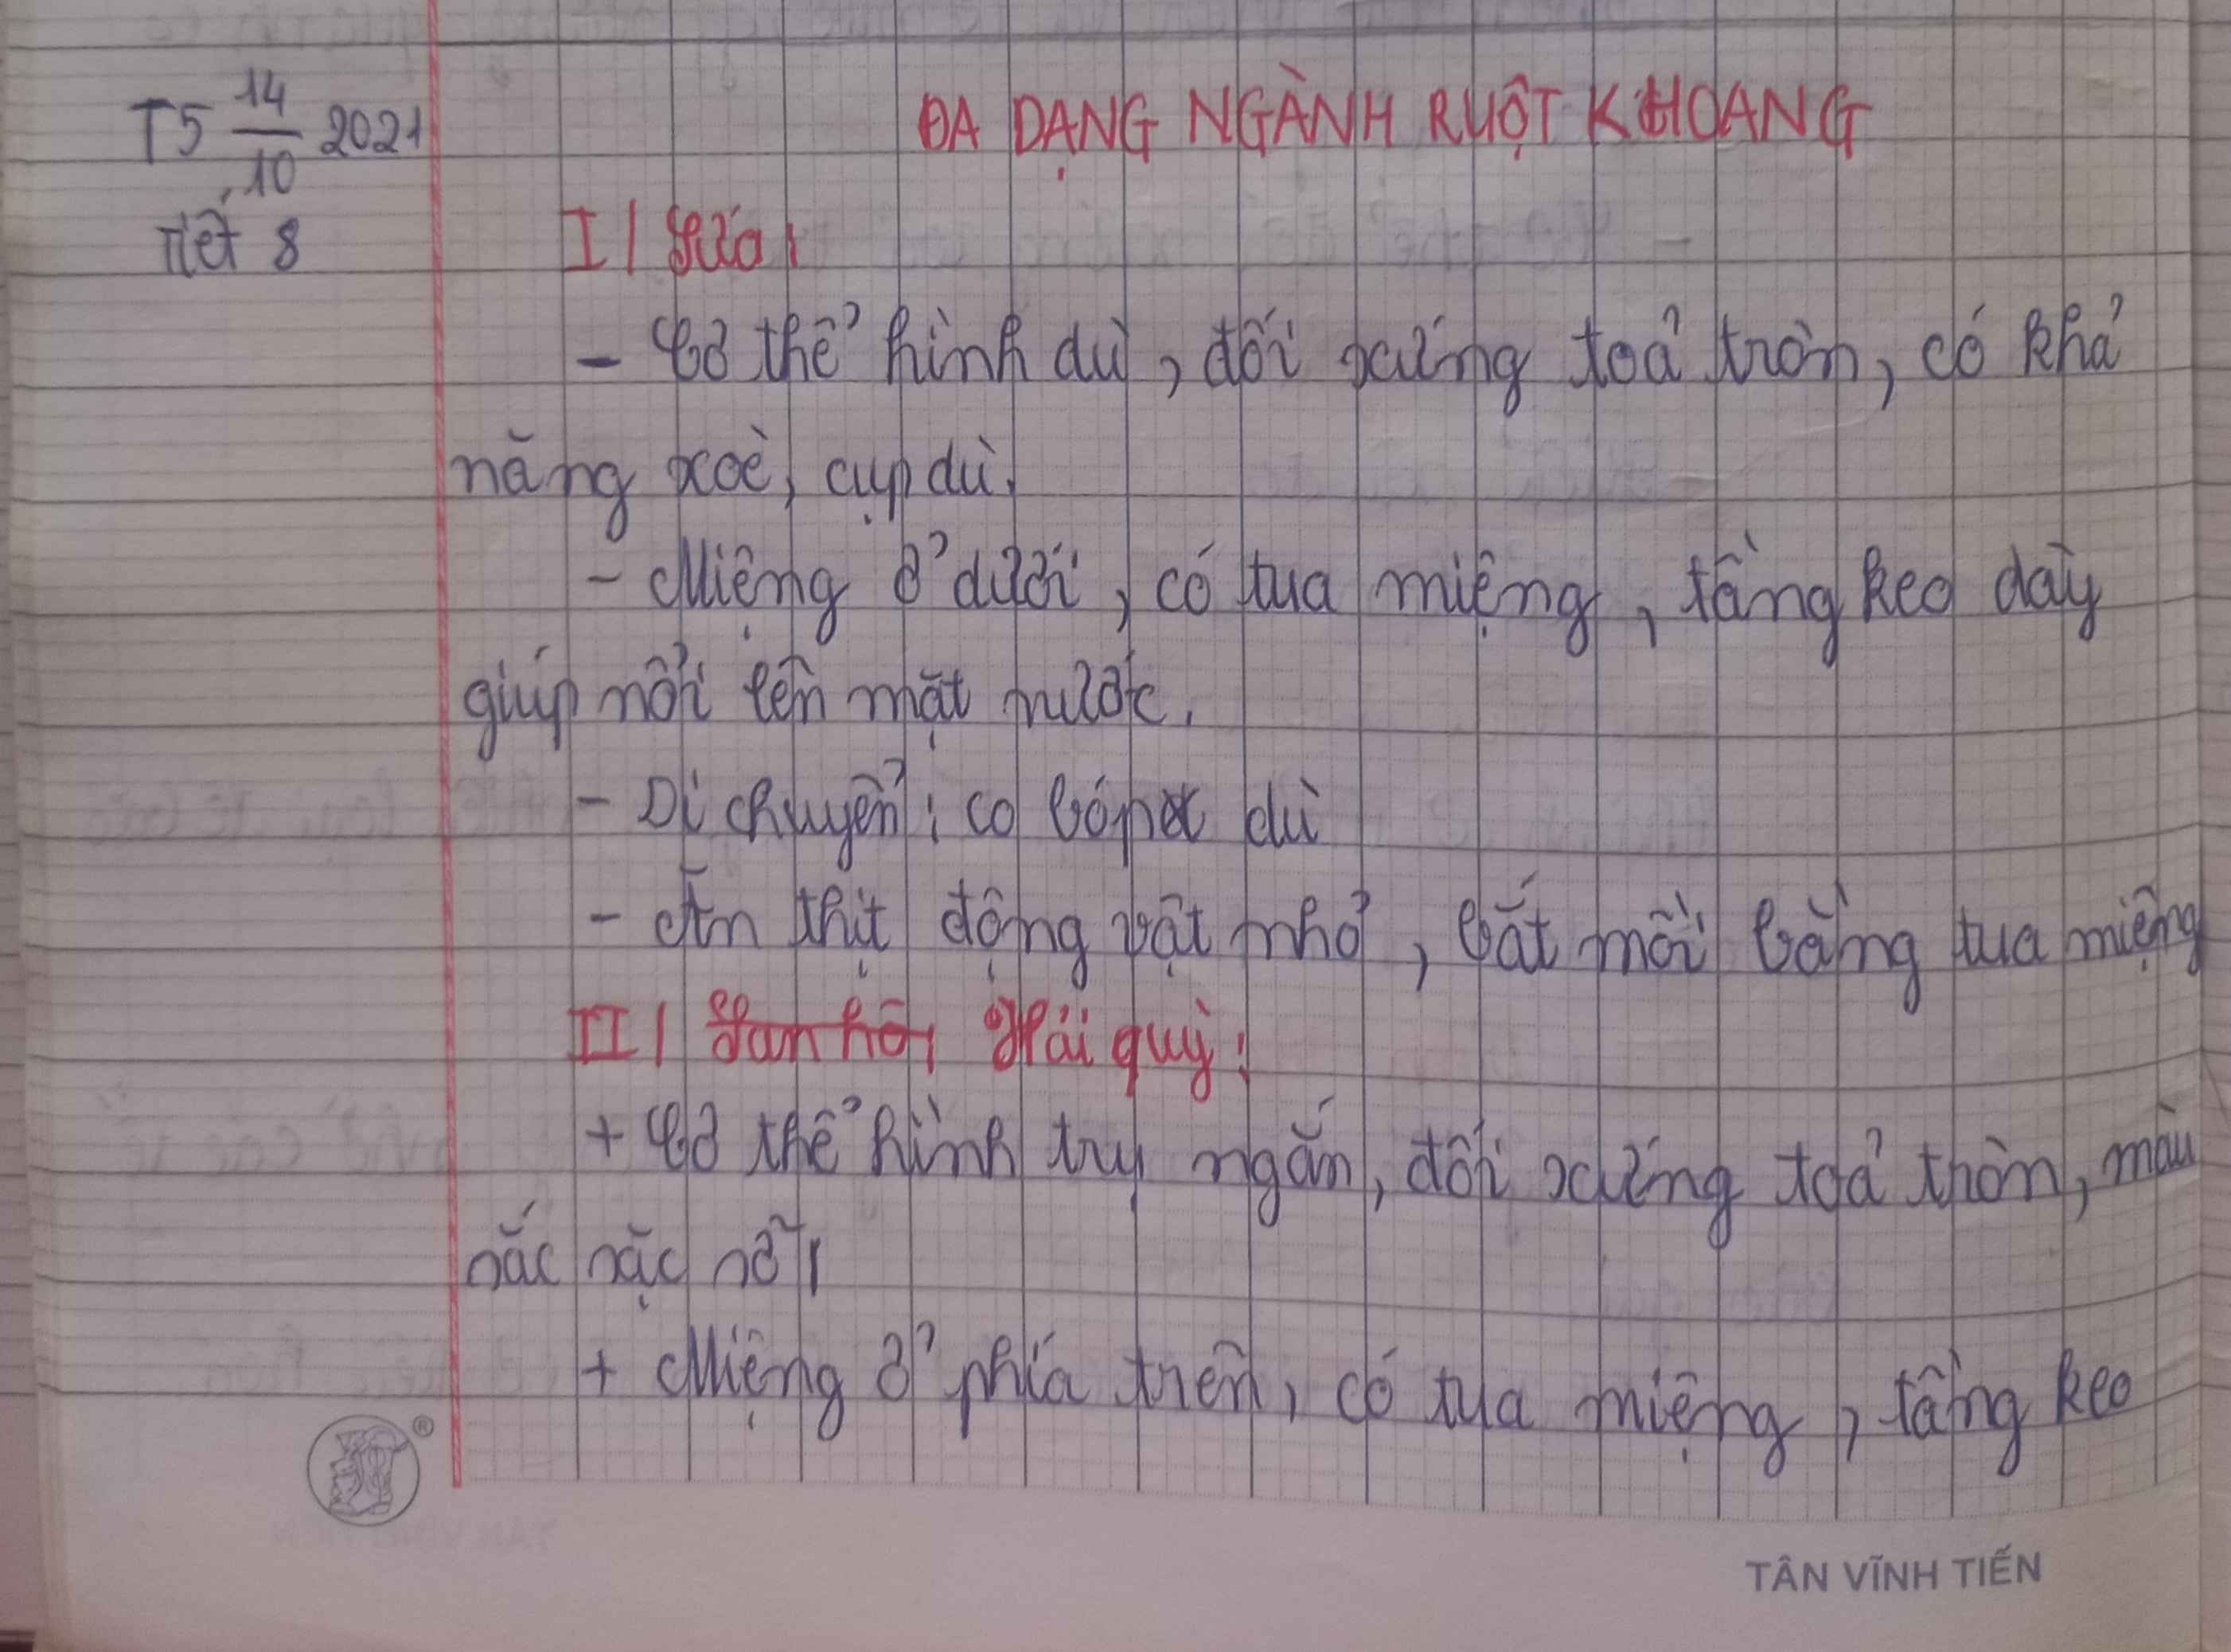 T5 14/10 2021
ĐA DẠNG NGÀNH RUỘT KHOANG
Tiết 8
I/ Sứa:
- Cơ thể hình dù, đối xứng toả tròn, có khả
năng xoè, cụp dù.
- Miệng ở dưới, có tua miệng, tầng keo dày
giúp nổi lên mặt nước.
- Di chuyển: co bóp dù
- Ăn thịt động vật nhỏ, bắt mồi bằng tua miệng
II/ San hô, Hải quỳ:
+ Cơ thể hình trụ ngắn, đối xứng toả tròn, màu
sắc sặc sỡ.
+ Miệng ở phía trên, có tua miệng, tầng keo
®
TÂN VĨNH TIẾN